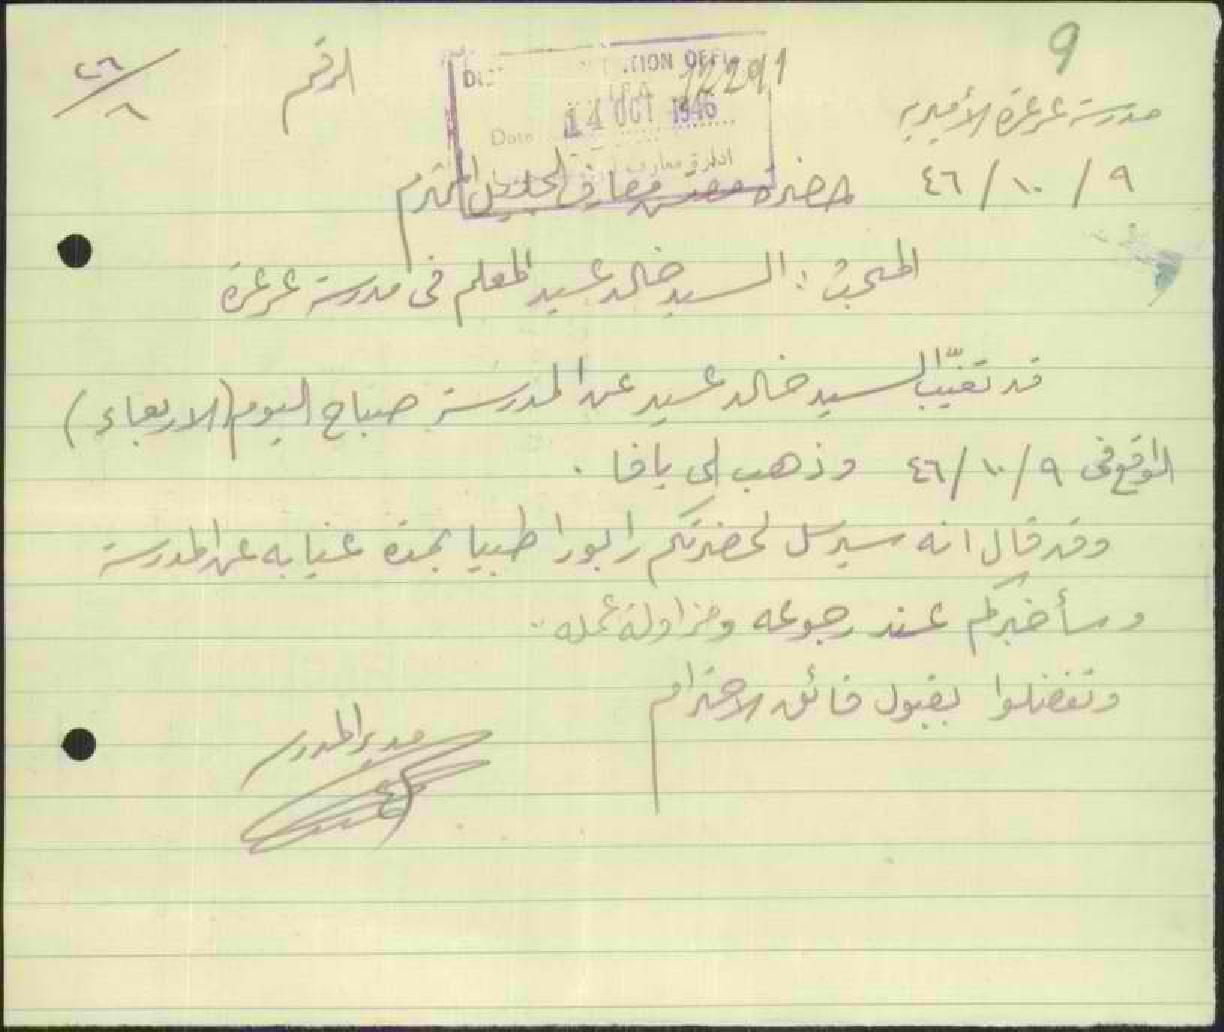 9
مدرسة عرعرة الأميرية
الرقم
٢٦/٨
DI... ...TION OFFI...
12291
Date 14 OCT 1946
ادارة معارف
٩ / ١٠ / ٤٦
حضرة مفتش معارف الجليل المحترم
المبحث : السيد خالد عبيد المعلم في مدرسة عرعرة
قد تغيّب السيد خالد عبيد عن المدرسة صباح اليوم (الاربعاء)
الواقع في ٩ / ١٠ / ٤٦ وذهب الى يافا .
وقد قال انه سيرسل لحضرتكم رابورا طبيا بمدة غيابه عن المدرسة
وسأخبركم عند رجوعه ومزاولة عمله .
وتفضلوا بقبول فائق الاحترام
مدير المدرسة